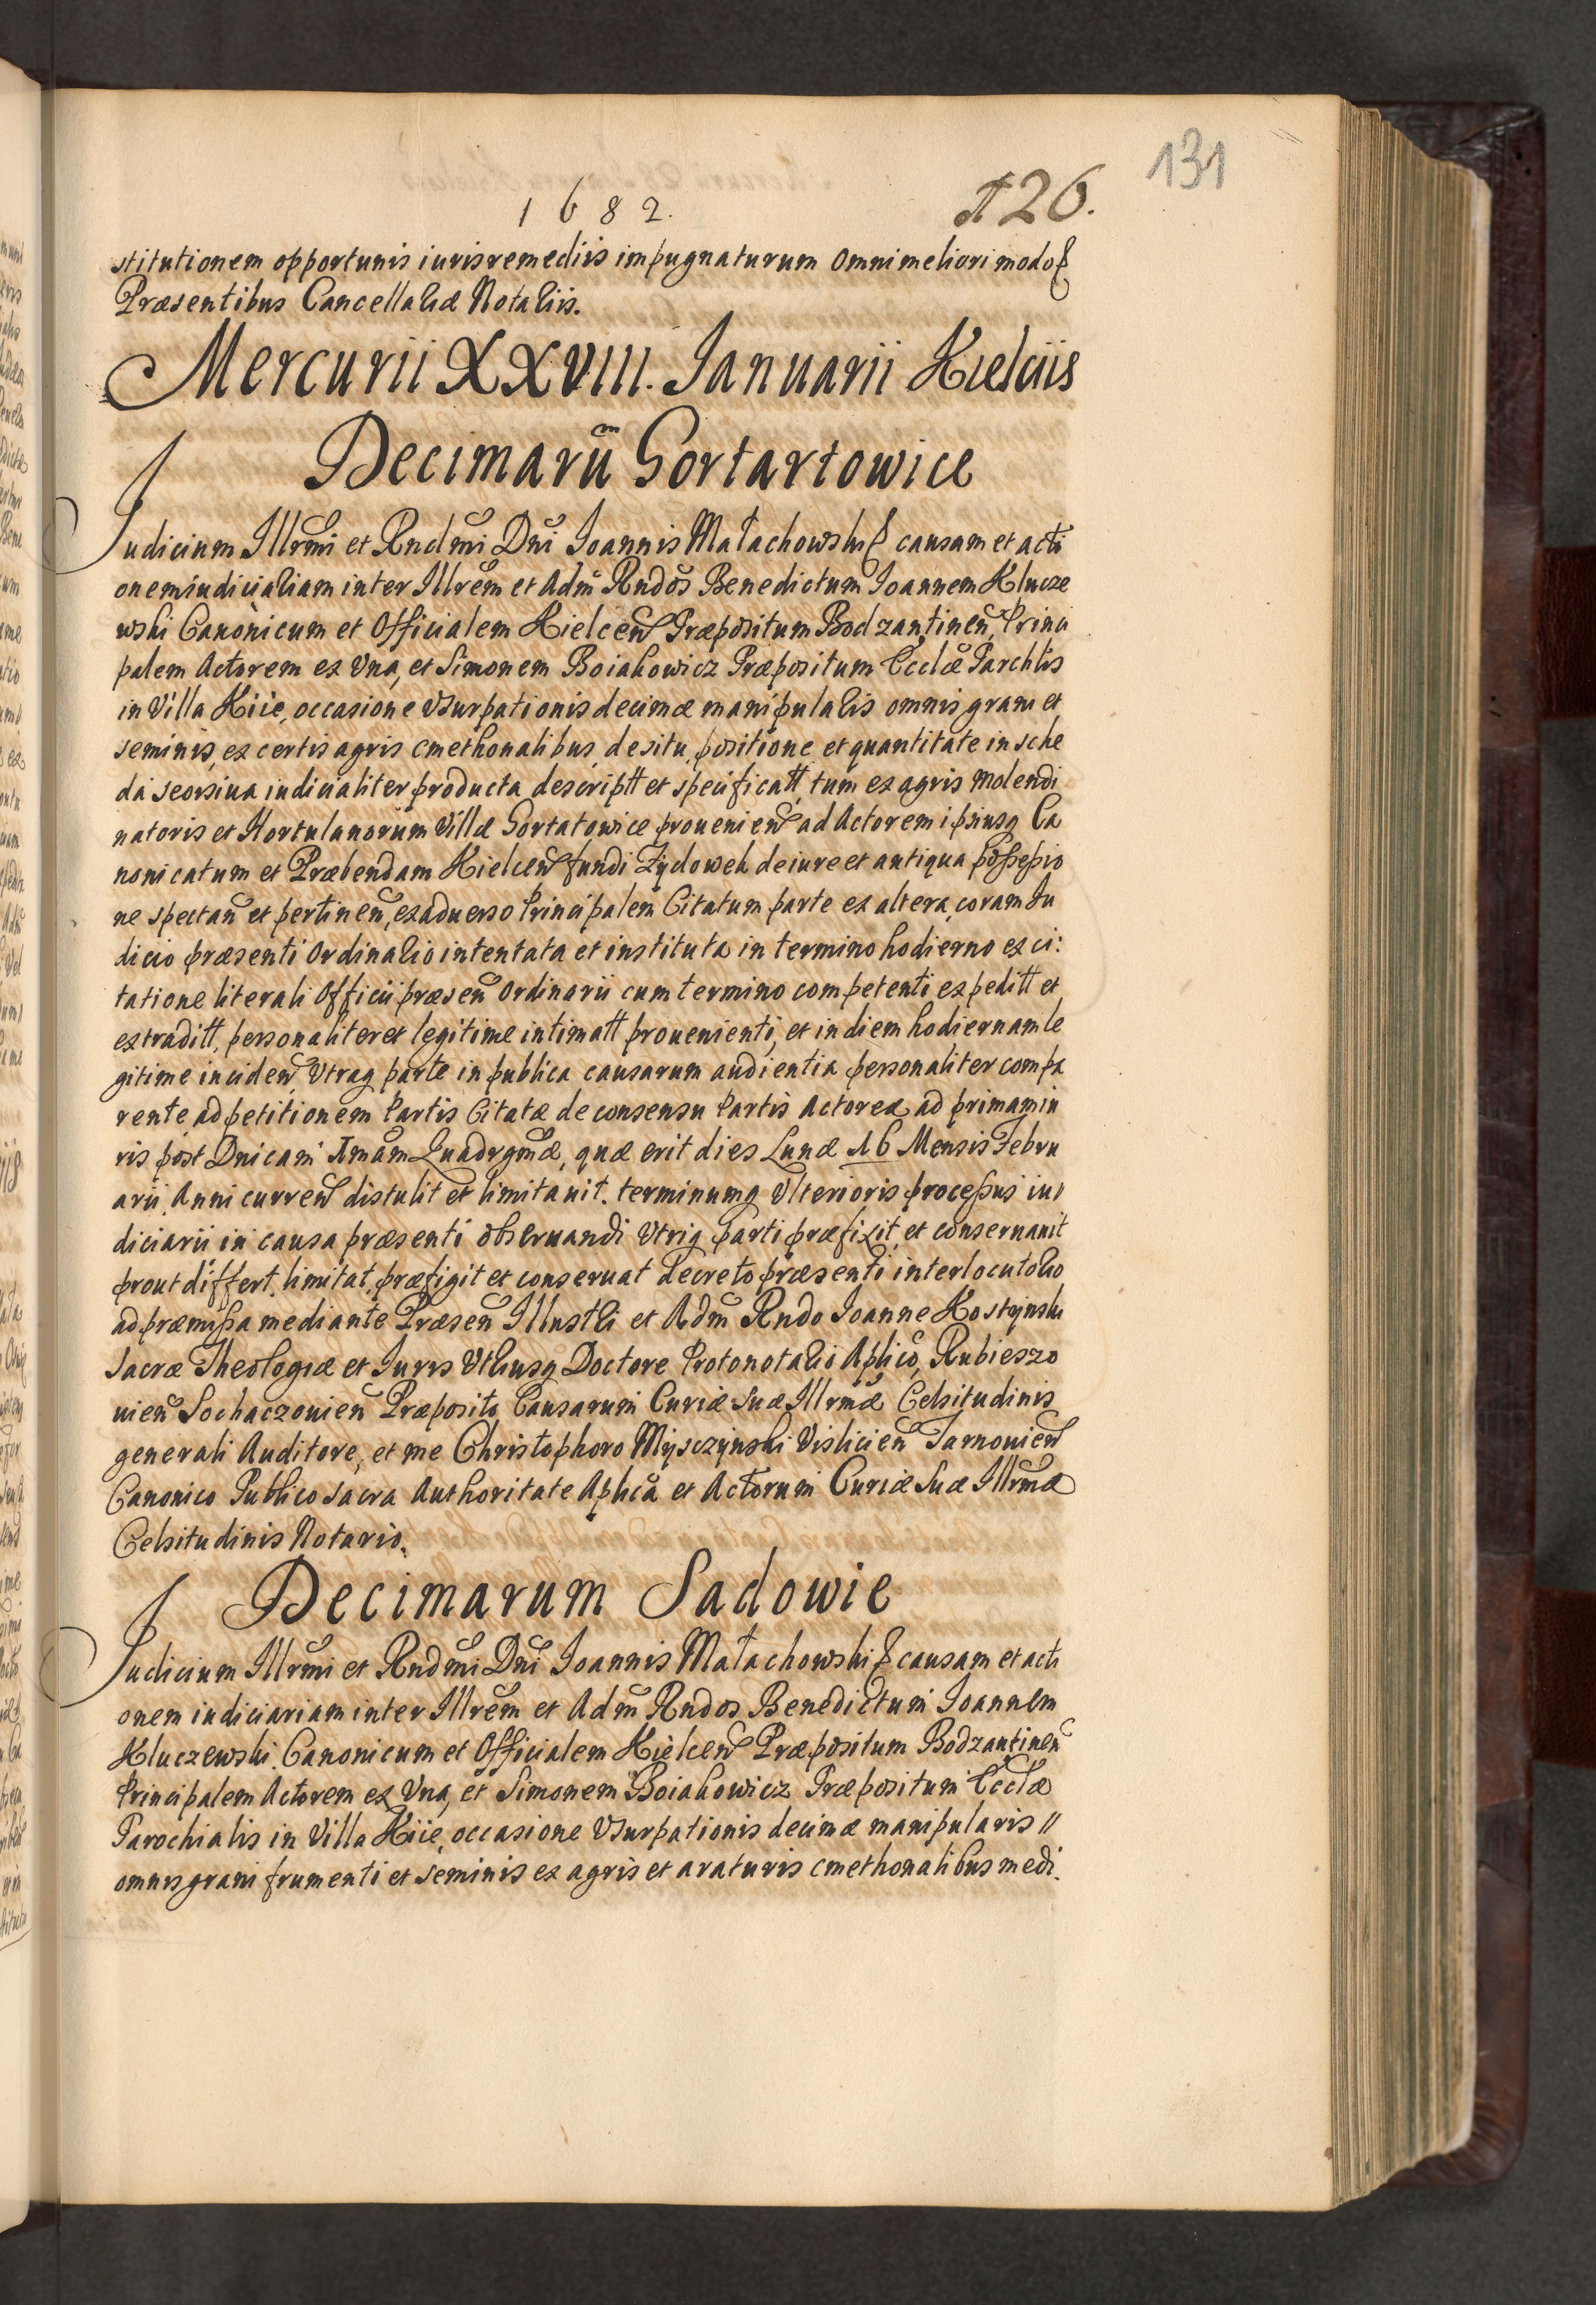 131
1682.
126.
stitutionem opportunis iuris remediis impugnaturum omni meliori modo
Præsentibus Cancellariæ Notariis.
Mercurii XXVIII. Ianuarii Kielciis
Decimarũ Gortartowice
Iudicium Illrmi et Rndmi Dni Ioannis Małachowski causam et acti
onem iudiciariam inter Illrem et Adm Rndos Benedictum Ioannem Klucze
wski Canonicum et Officialem Kielcen Præpositum Bodzantinen, Princi
palem Actorem ex Vna, et Simonem Boiakowicz Præpositum Eccłæ Parchlis
in Villa Kiie, occasione Vsurpationis decimæ manipularis omnis grani et
seminis, ex certis agris cmethonalibus, de situ, positione et quantitate in sche
da seorsiua iudicialiter producta descriptt et specificatt, tum ex agris molendi
natoris et Hortulanorum Villæ Gortatowice prouenien ad Actorem ipsiusq Ca
nonicatum et Præbendam Kielcen fundi Zydowek de iure et antiqua possessio
ne spectan et pertinen, ex aduerso Principalem Citatum parte ex altera, coram Iu
dicio præsenti Ordinario intentata et instituta in termino hodierno ex ci:
tatione literali Officii præsen Ordinarii cum termino competenti expeditt et
extraditt, personaliter et legitime intimatt prouenienti, et in diem hodiernam le
gitime inciden Vtraq parte in publica causarum audientia personaliter compa
rente ad petitionem Partis Citatæ de consensu Partis Actoreæ ad primam iu
ris post Dnicam Imam Quadrgmæ, quæ erit dies Lunæ 16 Mensis Febru
arii, Anni curren distulit et limitauit. terminumq Vlterioris processus iu
diciarii in causa præsenti obseruandi Vtriq parti præfixit, et conseruauit
prout differt, limitat, præfigit et conseruat decreto præsenti interlocutorio
ad præmissa mediante Præsen Illustri et Adm Rndo Ioanne Kostynski
Sacræ Theologiæ et Iuris Vtriusq Doctore Protonotario Aplico, Rubieszo
uien Sochaczouien Præposito Causarum Curiæ Suæ Illrmæ Celsitudinis
generali Auditore, et me Christophoro Mysczynski Vislicien Tarnouien
Canonico Publico Sacra Authoritate Aplica et Actorum Curiæ Suæ Illrmæ
Celsitudinis Notario.
Decimarum Sadowie
Iudicium Illrmi et Rndmi Dni Ioannis Małachowski causam et acti
onem iudiciariam inter Illrem et Adm Rndos Benedictum Ioannem
Kluczewski Canonicum et Officialem Kielcen Præpositum Bodzantinen
Principalem Actorem ex Vna, et Simonem Boiakowicz Præpositum Eccłæ
Parochialis in Villa Kiie, occasione Vsurpationis decimæ manipularis //
omnis grani frumenti et seminis ex agris et araturis cmethonalibus medi.